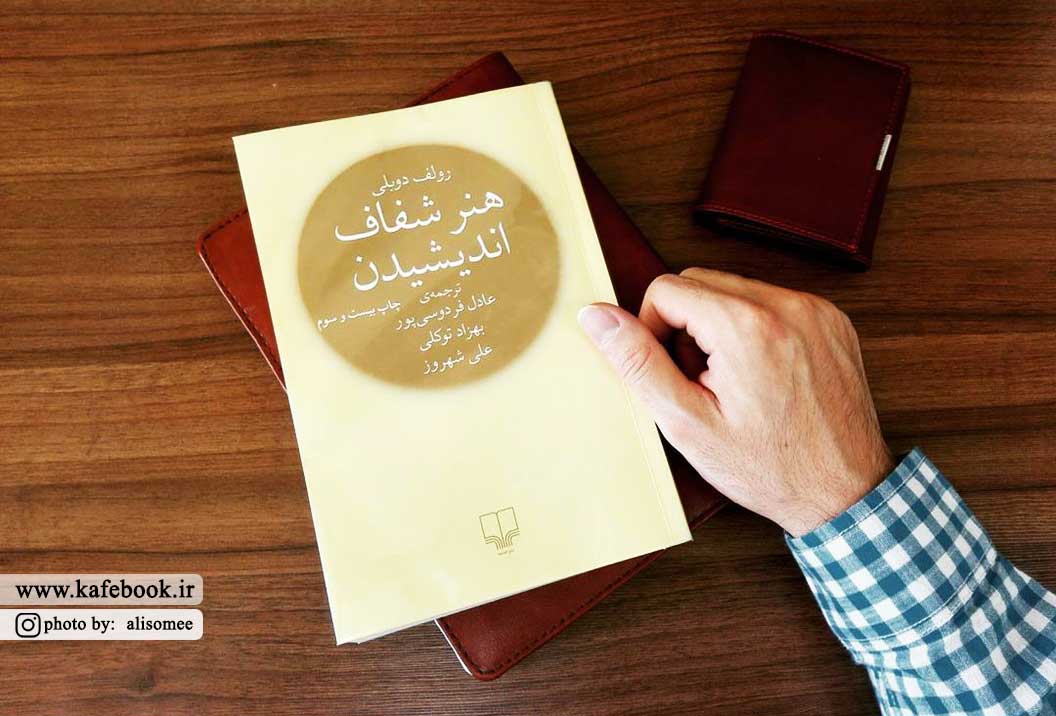 رولف دوبلی
هنر شفاف
اندیشیدن
ترجمه‌ی
عادل فردوسی‌پور
چاپ بیست و سوم
بهزاد توکلی
علی شهروز
www.kafebook.ir
photo by: alisomee